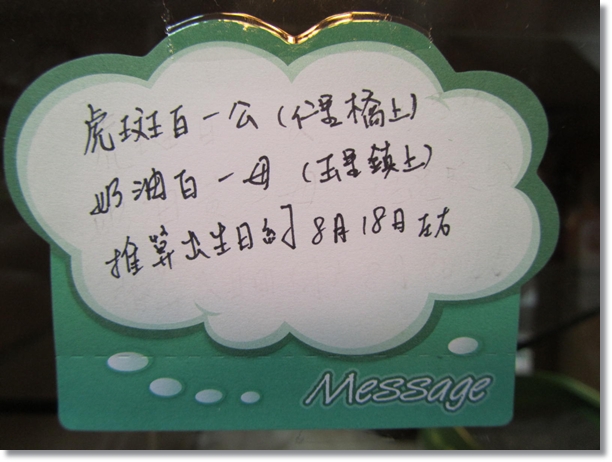 虎斑白一公(仁里橋上)
奶油白一母(玉里鎮上)
推算出生日約8月18日左右
Message